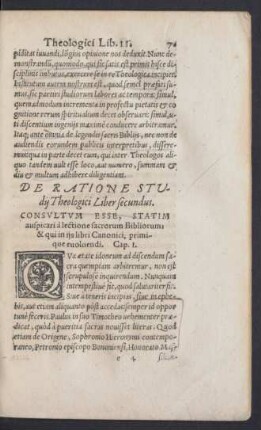 Theologici Lib. II. 74
piditas iuuandi, lõgius opinione nos deduxit. Nunc de-
monstrandũ, quomodo, qui sic satis est primis hisce di-
sciplinis imbutus, exercere se in re Theologica
Institutum autem nostrum est, quod semel
mus, sic partiri studiorum labores ac tempora: simul,
quem ad modum incrementa in profectu pietatis & co
gnitione rerum spiritualium decet obseruare: simul, u-
ti discentium ingenijs maximè conducere arbitramur.
Itaq; ante omnia de legendis sacris Biblijs, nec non de
audiendis eorundem publicis interpretibus, differe-
mus: qua in parte docet eum, qui inter Theologos ali
quo tandem uult esse loco, aut numero, summam et
diu & multum adhibere diligentiam.
DE RATIONE STU-
dij Theologici Liber secundus.
CONSVLTVM ESSE, STATIM
auspicari à lectione sacrorum Bibliorum:
& qui in ijs libri Canonici, primi-
que euoluendi. Cap. I.
QVa ætate idoneum ad discendum sa-
cra quempiam arbitremur, non est
scrupulosè inquirendum. Nunquam
intempestiuè fit, quod salutariter fit.
Siue à teneris incipias, siue in ephe-
bis, aut etiam aliquanto pòst accedas semper id oppor
tunè feceris. Paulus in suo Timotheo uehementer præ-
dicat, quòd à pueritia sacras nouisset literas. Quod
etiam de Origene, Sophronius Hieronymi contempo-
raneus, Petronio episcopo Bononiensi, Honorato
e 4